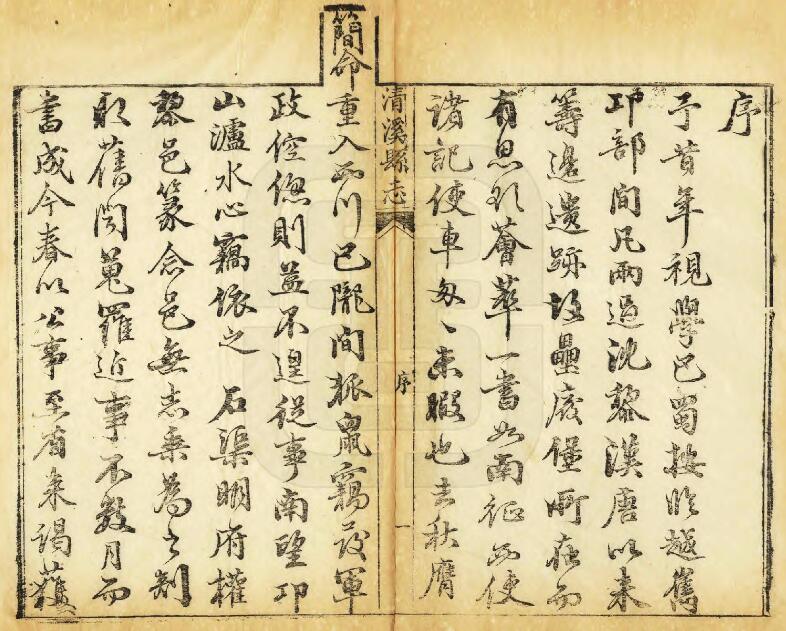 序
予昔年視學巴蜀按臨越嶲
邛部間凡兩過沈黎漢唐以来
籌邊遺跡故壘廢堡所在而
有思欲薈萃一書如南征西使
諸記使車匆〻未暇也去秋膺
清溪縣志 序 一
簡命重入西川巴隴間狐鼠竊發軍
政倥傯則益不遑從事南望邛
山瀘水心竊依之 石渠明府權
黎邑篆念邑無志乘為之
取舊聞蒐羅近事不數月而
書成今春以公事至省来謁獲